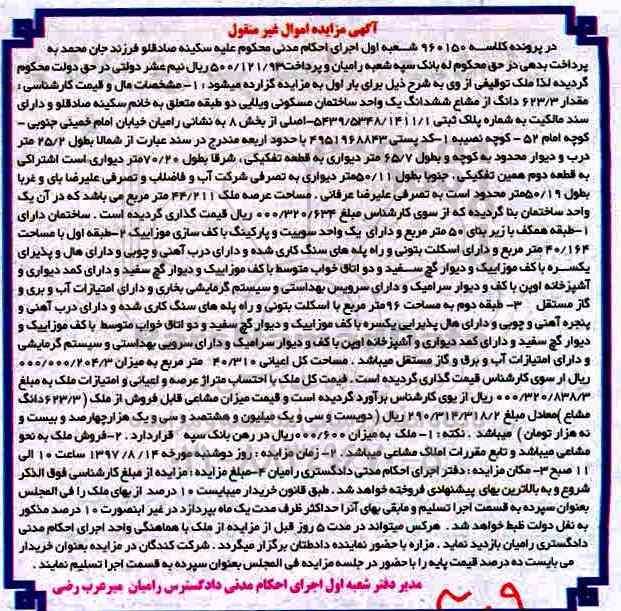 آگهی مزایده اموال غیر منقول
در پرونده کلاسه ۹۶۰۱۵۰ شعبه اول اجرای احکام مدنی محکوم علیه سکینه صادقلو فرزند جان محمد به
پرداخت بدهی در حق محکوم له بانک سپه شعبه رامیان و پرداخت ۵۰۰/۱۲۱/۹۳ ریال نیم عشر دولتی در حق دولت محکوم
گردیده لذا ملک توقیفی از وی به شرح ذیل برای بار اول به مزایده گزارده میشود : ۱- مشخصات مال و قیمت کارشناسی :
مقدار ۶۲۳/۳ دانگ از مشاع ششدانگ یک واحد ساختمان مسکونی ویلایی دو طبقه متعلق به خانم سکینه صادقلو و دارای
سند مالکیت به شماره پلاک ثبتی ۵۴۳۹/۵۳۴۸/۱۴۱۱/۱-اصلی از بخش ۸ به نشانی رامیان خیابان امام خمینی جنوبی -
کوچه امام ۵۲ - کوچه نصیبه ۱-کد پستی ۴۹۵۱۹۶۸۸۴۳ با حدود اربعه مندرج در سند عبارت از شمالا بطول ۲۵/۲ متر
درب و دیوار محدود به کوچه و بطول ۶۵/۷ متر دیواری به قطعه تفکیکی ، شرقا بطول ۷۰/۲۰ متر دیواری است اشتراکی
به قطعه دوم همین تفکیکی ، جنوبا بطول ۵۰/۱۱ متر دیواری به تصرفی شرکت آب و فاضلاب و تصرفی علیرضا بای و غربا
بطول ۵۰/۱۹ متر محدود است به تصرفی علیرضا عرفانی . مساحت عرصه ملک ۴۴/۲۱۱ متر مربع می باشد که در آن یک
واحد ساختمان بنا گردیده که از سوی کارشناس مبلغ ۰۰۰/۳۲۰/۶۳۴ ریال قیمت گذاری گردیده است . ساختمان دارای
۱-طبقه همکف با زیر بنای ۵۰ متر مربع و دارای یک واحد سوییت و پارکینگ با کف سازی موزاییک ۲-طبقه اول با مساحت
۴۰/۱۶۴ متر مربع و دارای اسکلت بتونی و راه پله های سنگ کاری شده و دارای درب آهنی و چوبی و دارای هال و پذیرای
یکسره با کف موزاییک و دیوار گچ سفید و دو اتاق خواب متوسط با کف موزاییک و دیوار گچ سفید و دارای کمد دیواری و
آشپزخانه اوپن با کف و دیوار سرامیک و دارای سرویس بهداشتی و سیستم گرمایشی بخاری و دارای امتیازات آب و بری و
گاز مستقل ۳- طبقه دوم به مساحت ۹۶متر مربع با اسکلت بتونی و راه پله های سنگ کاری شده و دارای درب آهنی و
پنجره آهنی و چوبی و دارای هال پذیرایی یکسره با کف موزاییک و دیوار گچ سفید و دو اتاق خواب متوسط با کف موزاییک و
دیوار گچ سفید و دارای کمد دیواری و آشپزخانه اوپن با کف و دیوار سرامیک و دارای سرویی بهداستی و سیستم گرمایشی
و دارای امتیازات آب و برق و گاز مستقل میباشد . مساحت کل اعیانی ۴۰/۳۱۰ متر مربع به میزان ۰۰۰/۰۰۰/۲۰۴/۳
ریال از سوی کارشناس قیمت گذاری گردیده است . قیمت کل ملک با احتساب متراژ عرصه و اعیانی و امتیازات ملک به مبلغ
۰۰۰/۳۲۰/۸۳۸/۳ ریال از یوی کارشناس برآورد گردیده است و قیمت میزان مشاعی قابل فروش از ملک (۶۲۳/۳دانگ
مشاع )معادل مبلغ ۲۹۰/۳۱۴/۳۱۸/۲ ریال ( دویست و سی و یک میلیون و هشتصد و سی و یک هزارچهارصد و بیست و
نه هزار تومان ) میباشد . نکته : ۱- ملک به میزان ۰۰۰/۶۰۰ریال در رهن بانک سپه قراردارد . ۲-فروش ملک به نحو
مشاعی میباشد و تابع مقررات املاک مشاعی میباشد . ۲- زمان مزایده : روز دوشنبه مورخه ۱۳۹۷/۸/۱۴ ساعت ۱۰ الی
۱۱ صبح ۳- مکان مزایده : دفتر اجرای احکام مدنی دادگستری رامیان ۴-مبلغ مزایده : مزایده از مبلغ کارشناسی فوق الذکر
شروع و به بالاترین بهای پیشنهادی فروخته خواهد شد . طبق قانون خریدار میبایست ۱۰ درصد از بهای ملک را فی المجلس
بعنوان سپرده به قسمت اجرا تسلیم و مابقی بهای آنرا حداکثر ظرف مدت یک ماه بپردازد در غیر اینصورت ۱۰ درصد مذکور
به نفل دولت ظبط خواهد شد . هرکس میتواند در مدت ۵ روز قبل از مزایده از ملک با هماهنگی واحد اجرای احکام مدنی
دادگستری رامیان بازدید نماید . مزاره با حضور نماینده دادظتان برگزار میگردد . شرکت کنندگان در مزایده بعنوان خریدار
می بایست ده درصد قیمت پایه را با حضور در جلسه مزایده فی المجلس بعنوان سپرده به قسمت اجرا تسلیم نمایند .
مدیر دفتر شعبه اول اجرای احکام مدنی دادگسترس رامیان میرعرب رضی